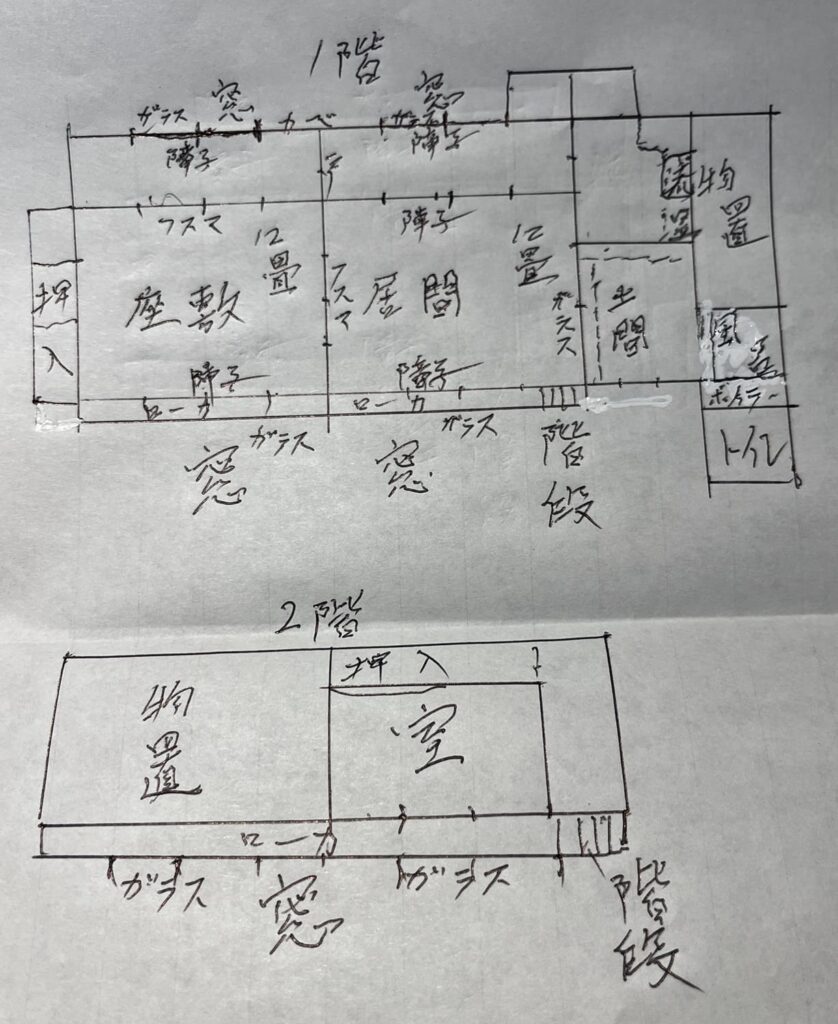 1階
ガラス 窓 カベ ガラス 窓
障子 障子
フスマ 障子
12畳 12畳
物置
押入
座敷
フスマ
居間
ガラス
土間
風呂
障子 障子
ローカ ローカ
ボイラー
ガラス ガラス
窓 窓
階段
トイレ
2階
押入
物置
室
ローカ
ガラス ガラス
窓
階段